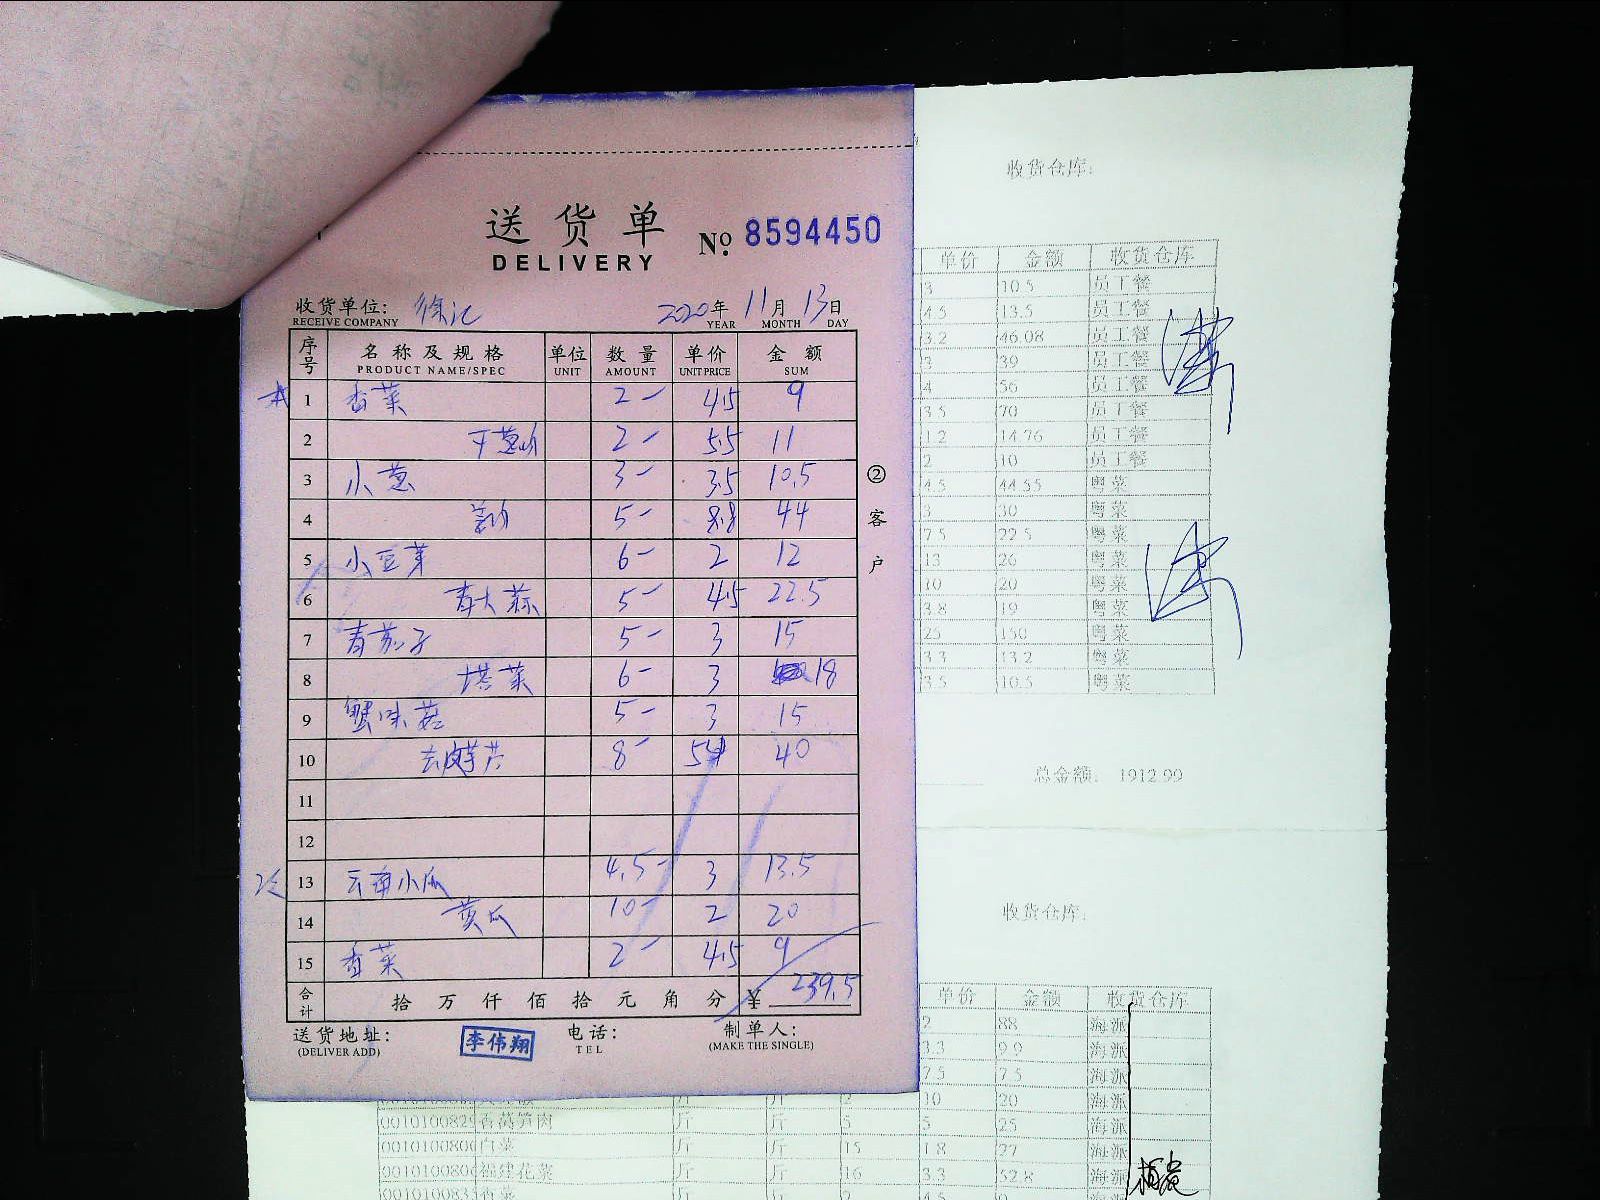 送货单
No. 8594450
DELIVERY
收货单位: 徐记 2020年 11月 13日
RECEIVE COMPANY YEAR MONTH DAY
序号 名称及规格 单位 数量 单价 金额
PRODUCT NAME/SPEC UNIT AMOUNT UNIT PRICE SUM
1 香菜 2- 4.5 9
2 2- 5.5 11
3 小葱 3- 3.5 10.5
4 5- 8.8 44
5 小豆芽 6- 2 12
6 青大蒜 5- 4.5 22.5
7 青茄子 5- 3 15
8 塔菜 6- 3 18
9 蟹味菇 5- 3 15
10 8- 5 40
11
12
13 云南小瓜 4.5- 3 13.5
14 黄瓜 10- 2 20
15 香菜 2- 4.5 9
合计 拾 万 仟 佰 拾 元 角 分 ¥ 239.5
送货地址: 李伟翔 电话: 制单人:
(DELIVER ADD) TEL (MAKE THE SINGLE)
②客户
收货仓库:
单价 金额 收货仓库
3 10.5 员工餐
4.5 13.5 员工餐
3.2 46.08 员工餐
3 39 员工餐
4 56 员工餐
3.5 70 员工餐
1.2 14.76 员工餐
2 10 员工餐
4.5 44.55 粤菜
3 30 粤菜
7.5 22.5 粤菜
13 26 粤菜
10 20 粤菜
3.8 19 粤菜
25 150 粤菜
3.3 13.2 粤菜
3.5 10.5 粤菜
总金额: 1912.99
收货仓库:
单价 金额 收货仓库
2 88 海派
3.3 9.9 海派
7.5 7.5 海派
斤 斤 2 10 20 海派
斤 斤 5 5 25 海派
白菜 斤 斤 15 1.8 27 海派
福建花菜 斤 斤 16 3.3 52.8 海派
香菜 斤 斤 2 4.5 9 海派